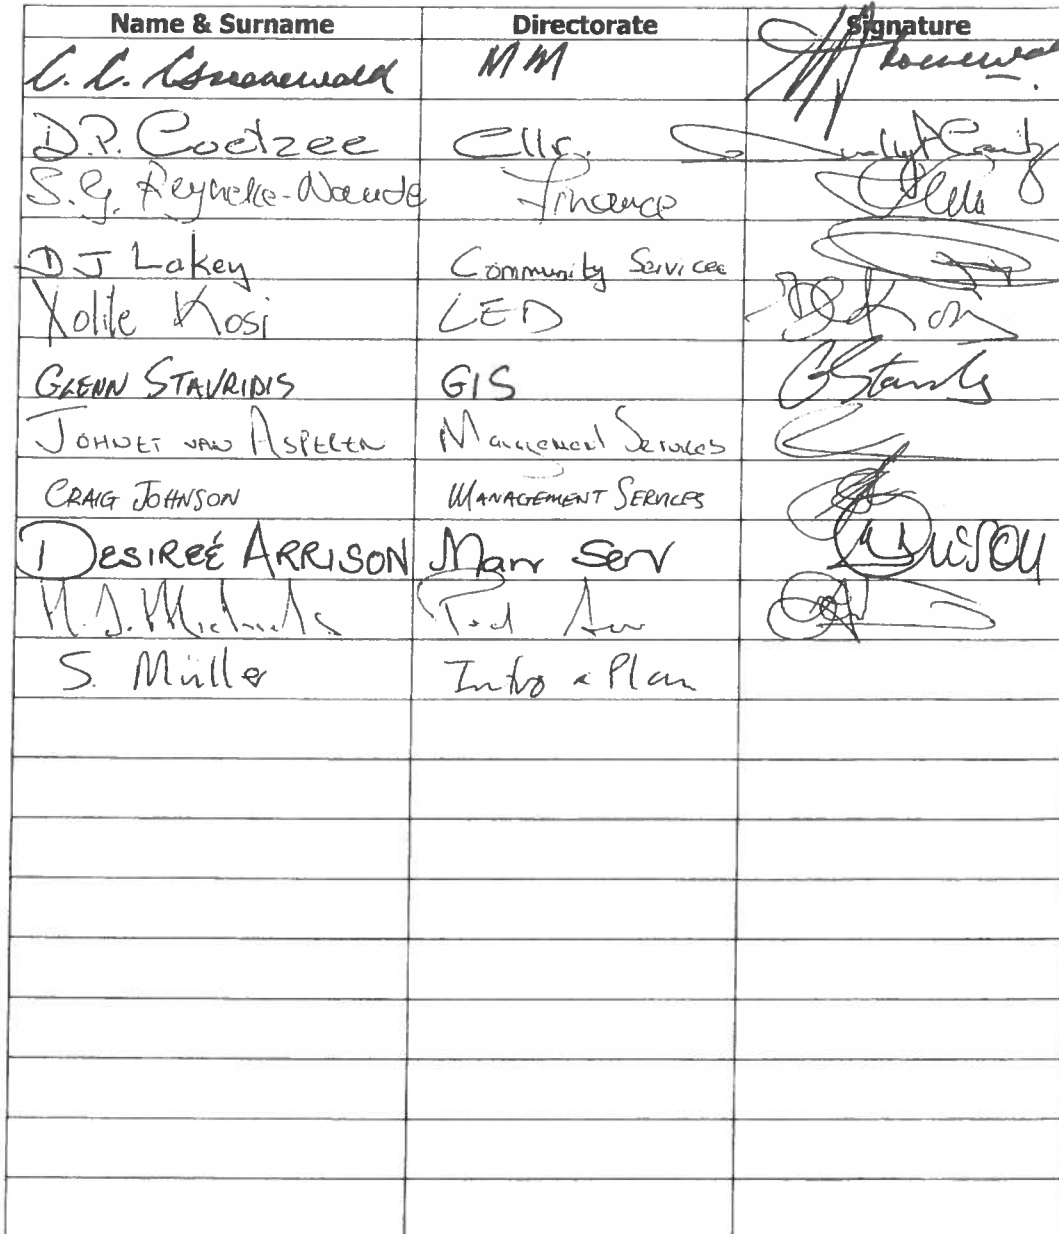 Name & Surname Directorate Signature
C. C. Groenewald MM
D.P. Coetzee Cllr.
S.G. Reyneke-Naude Finance
D J Lakey Community Services
Xolile Kosi LED
GLENN STAVRIDIS GIS
JOHNET VAN ASPEREN Management Services
CRAIG JOHNSON MANAGEMENT SERVICES
DESIREÉ ARRISON Man Serv
Michaels
S. Müller Infra & Plan